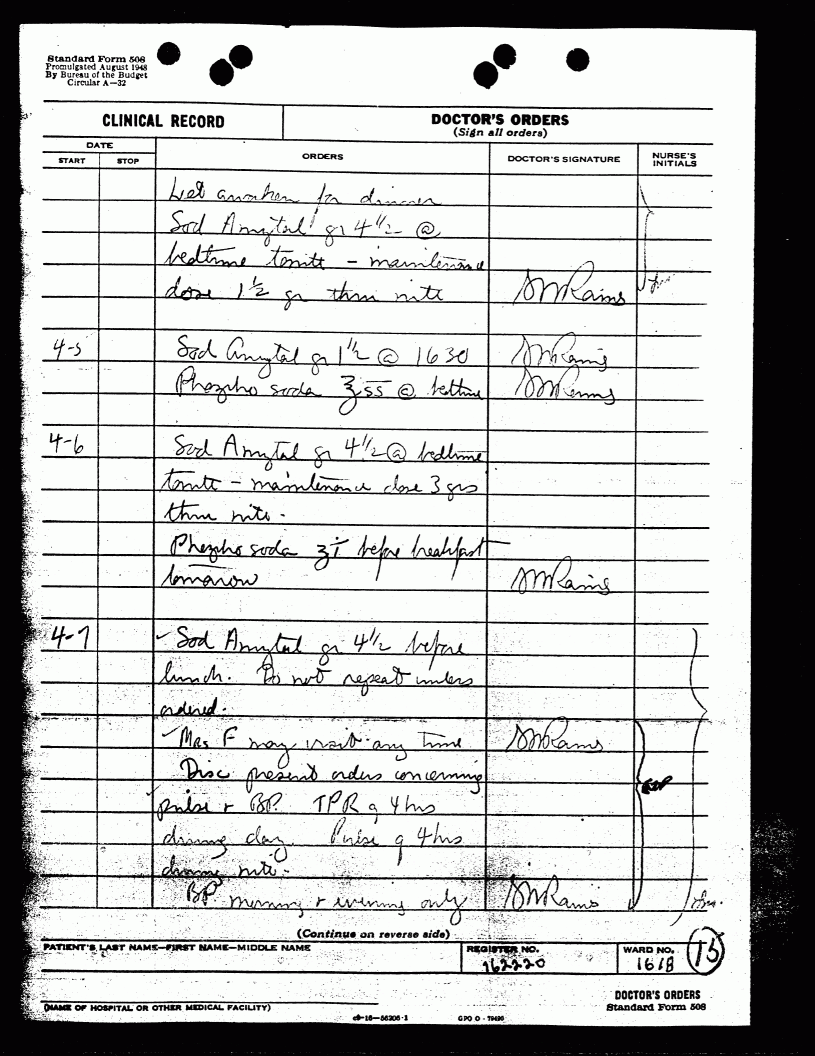 Standard Form 508
Promulgated August 1948
By Bureau of the Budget
Circular A—32
CLINICAL RECORD
DOCTOR'S ORDERS
(Sign all orders)
DATE
START
STOP
ORDERS
DOCTOR'S SIGNATURE
NURSE'S INITIALS
Let awaken for dinner
Sod Amytal gr 4 1/2 @
bedtime tonite - maintenance
dose 1 1/2 gr thru nite
4-5 Sod Amytal gr 1 1/2 @ 1630
Phospho soda ℥ss @ bedtime
4-6 Sod Amytal gr 4 1/2 @ bedtime
tonite - maintenance dose 3 grs
thru nite -
Phospho soda before breakfast
tomorrow
4-7 Sod Amytal gr 4 1/2 before
lunch. Do not repeat unless
ordered.
Mrs F may visit any time
Disc present orders concerning
pulse + BP. TPR q 4 hrs
during day. Pulse q 4 hrs
during nite.
BP morning + evening only
(Continue on reverse side)
PATIENT'S LAST NAME—FIRST NAME—MIDDLE NAME
REGISTER NO.
162220
WARD NO.
1618
15
DOCTOR'S ORDERS
Standard Form 508
(NAME OF HOSPITAL OR OTHER MEDICAL FACILITY)
c9—16—56206-1